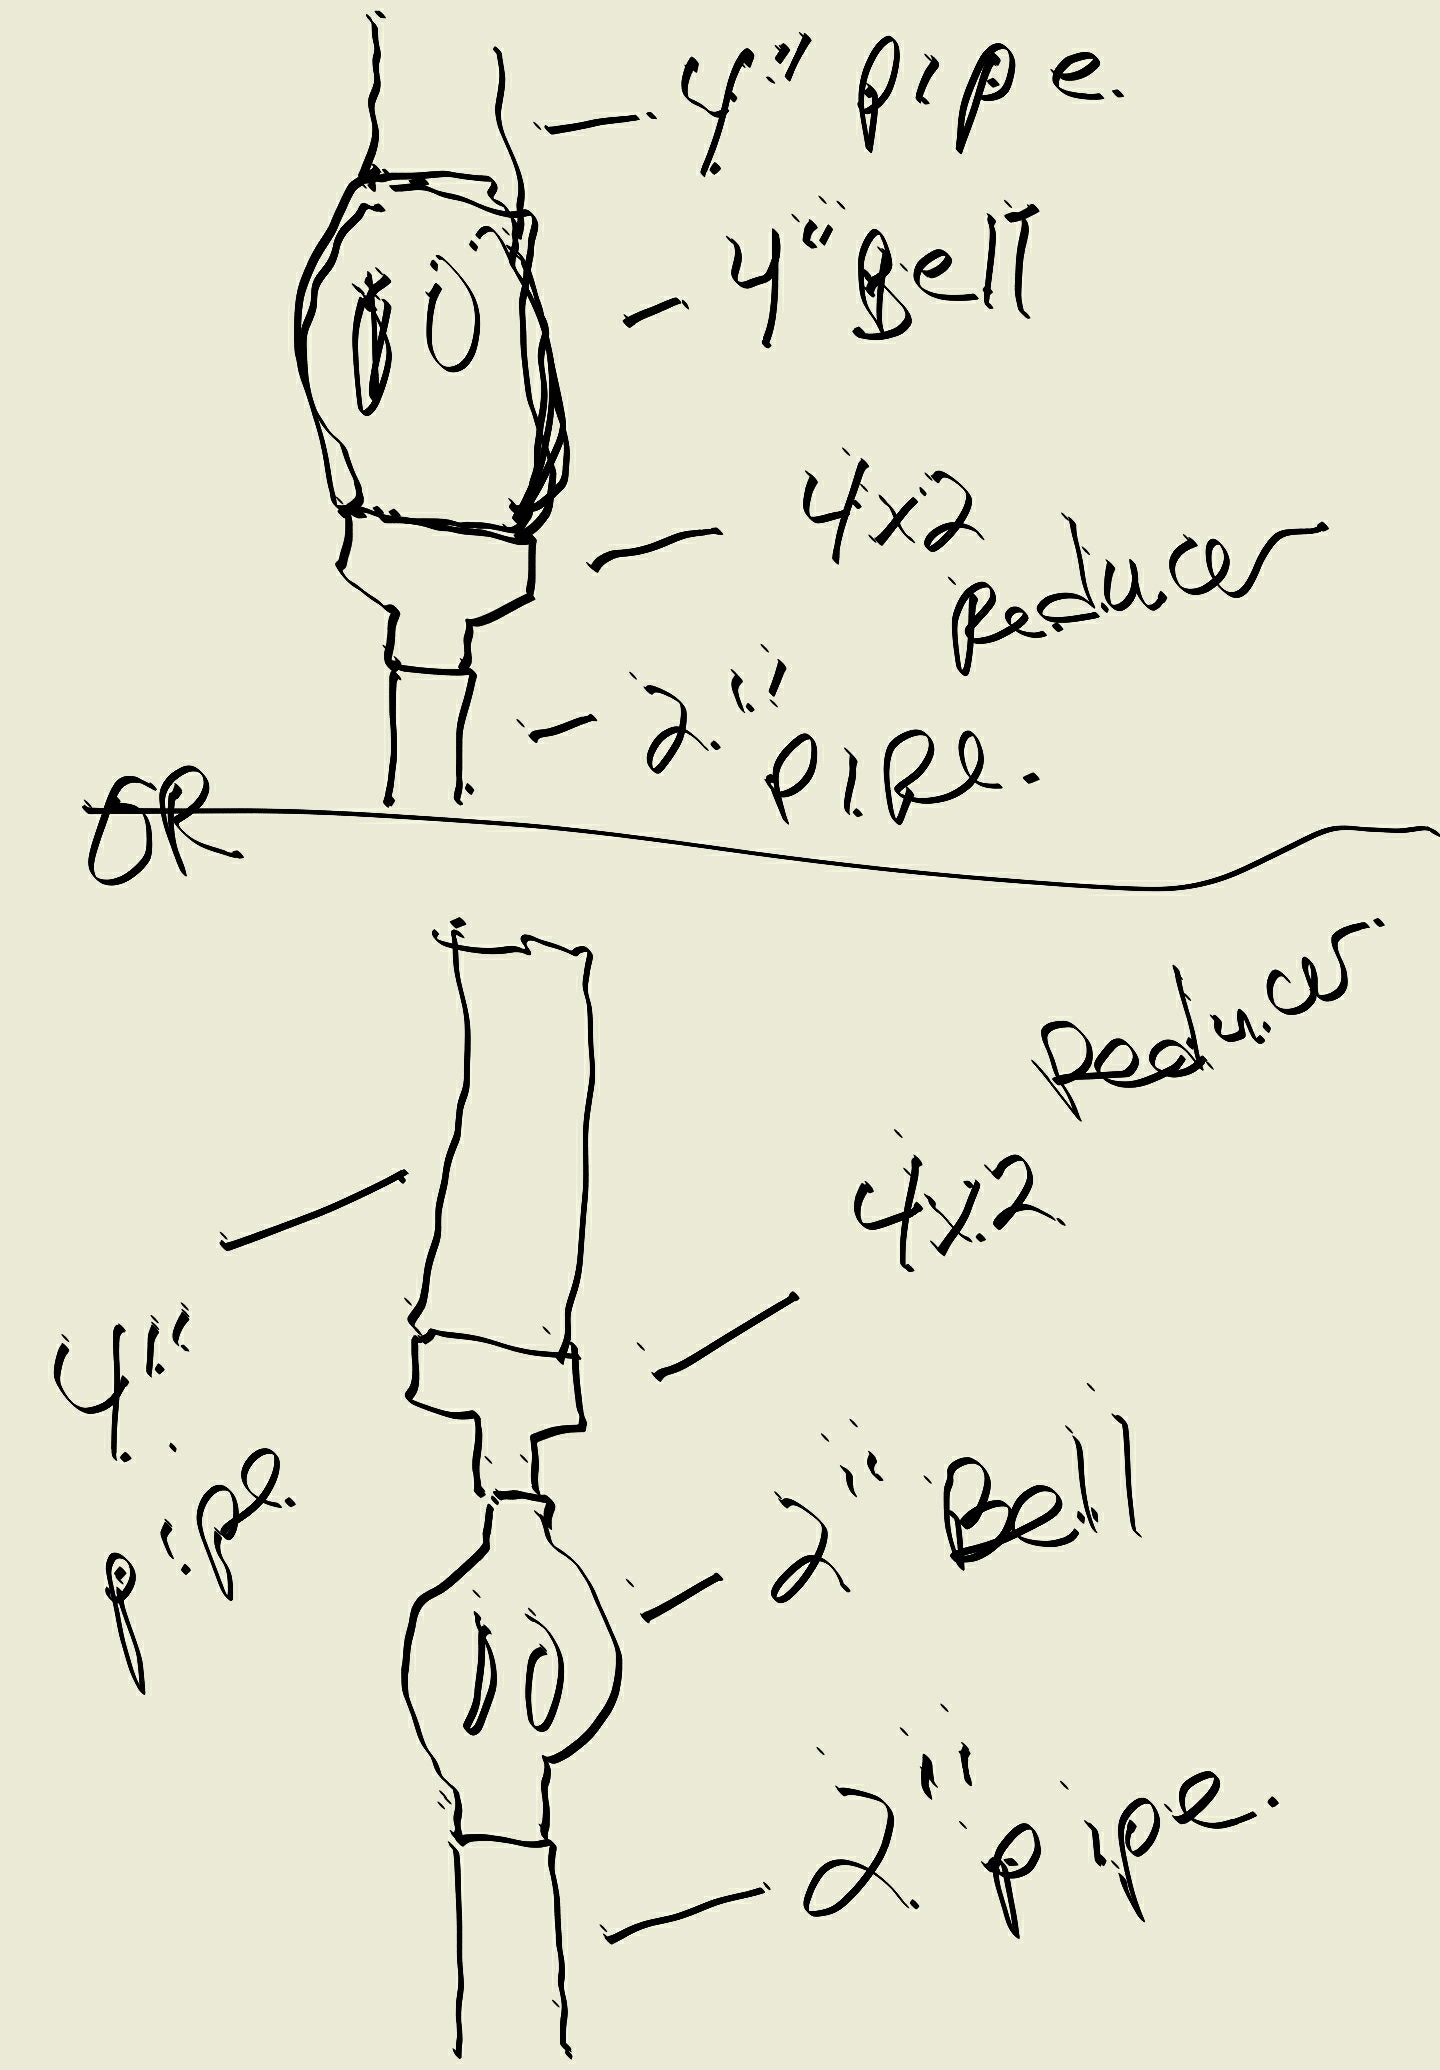 4" pipe.
4" Bell
4x2
Reducer
2" pipe.
OR
Reducer
4x2
4"
pipe
2" Bell
2" pipe.